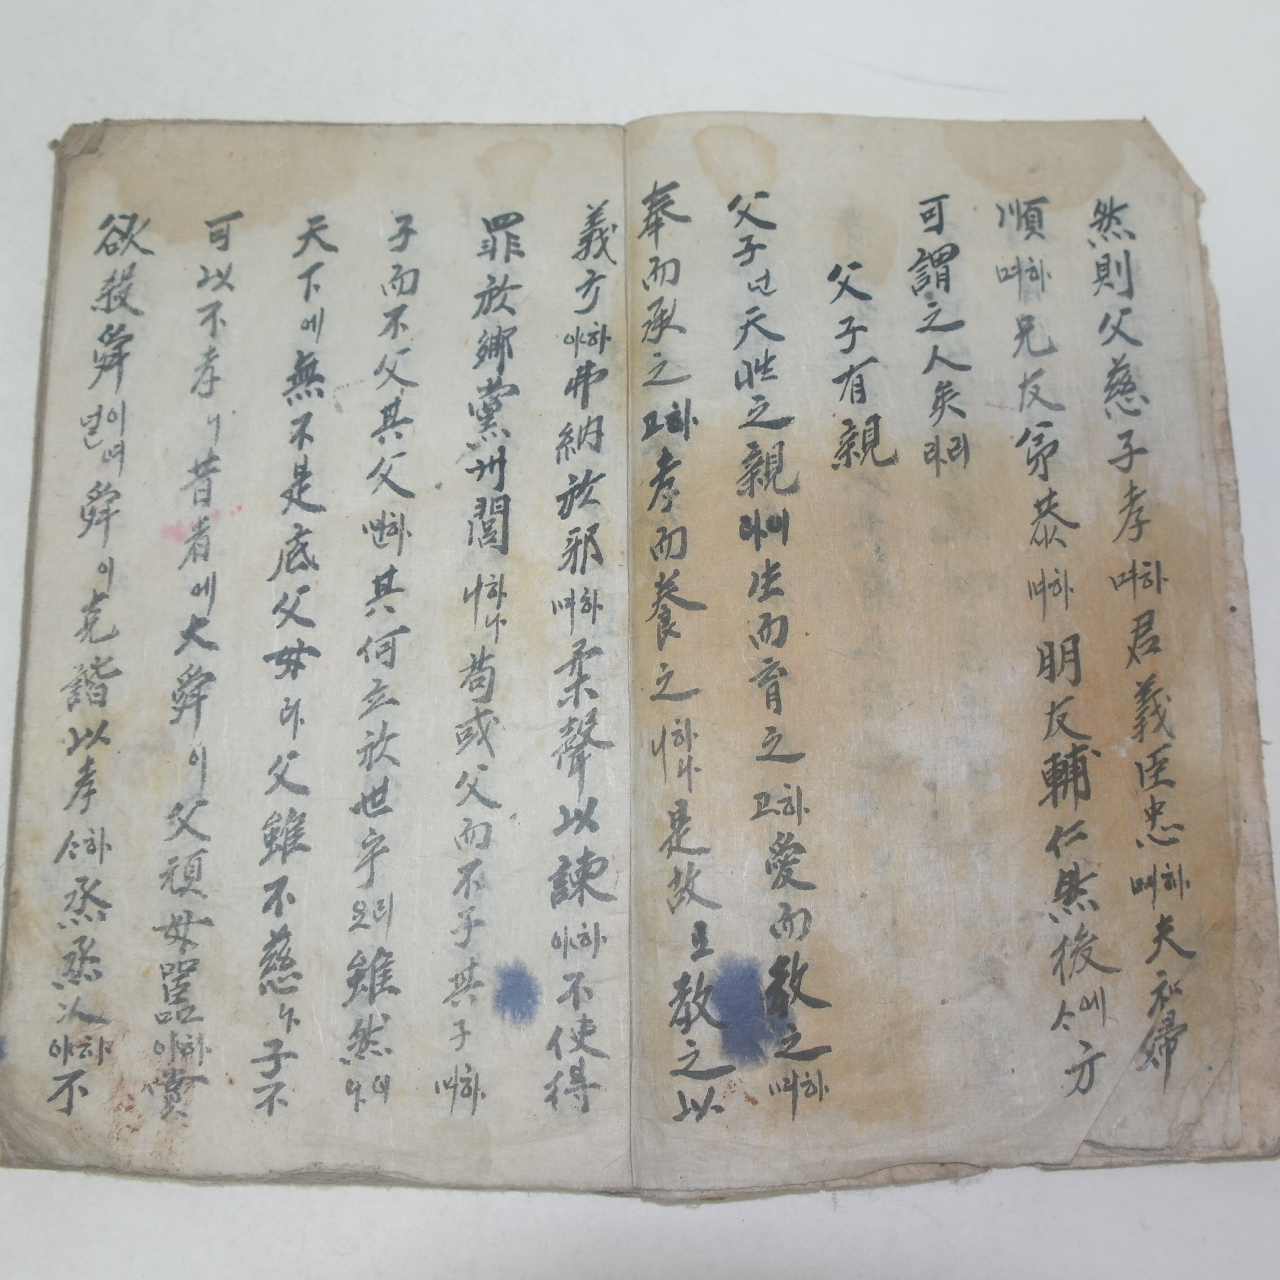 然則父慈子孝하며君義臣忠하며夫和婦
順하며兄友弟恭하며朋友輔仁然後에ᄉ方
可謂之人矣리라
父子有親
父子ᄂᆞᆫ天性之親이라生而育之하고愛而敎之하며
奉而承之하고孝而養之하나니是故로敎之以
義方하야弗納於邪하며柔聲以諫하야不使得
罪於鄕黨州閭하나니苟或父而不子其子하며
子而不父其父하면其何立於世乎리오雖然이나
天下에無不是底父母라父雖不慈나子不
可以不孝니昔者에大舜이父頑母嚚하야嘗
欲殺舜이어ᄂᆞᆯ舜이克諧以孝하ᄉ烝烝乂하야不